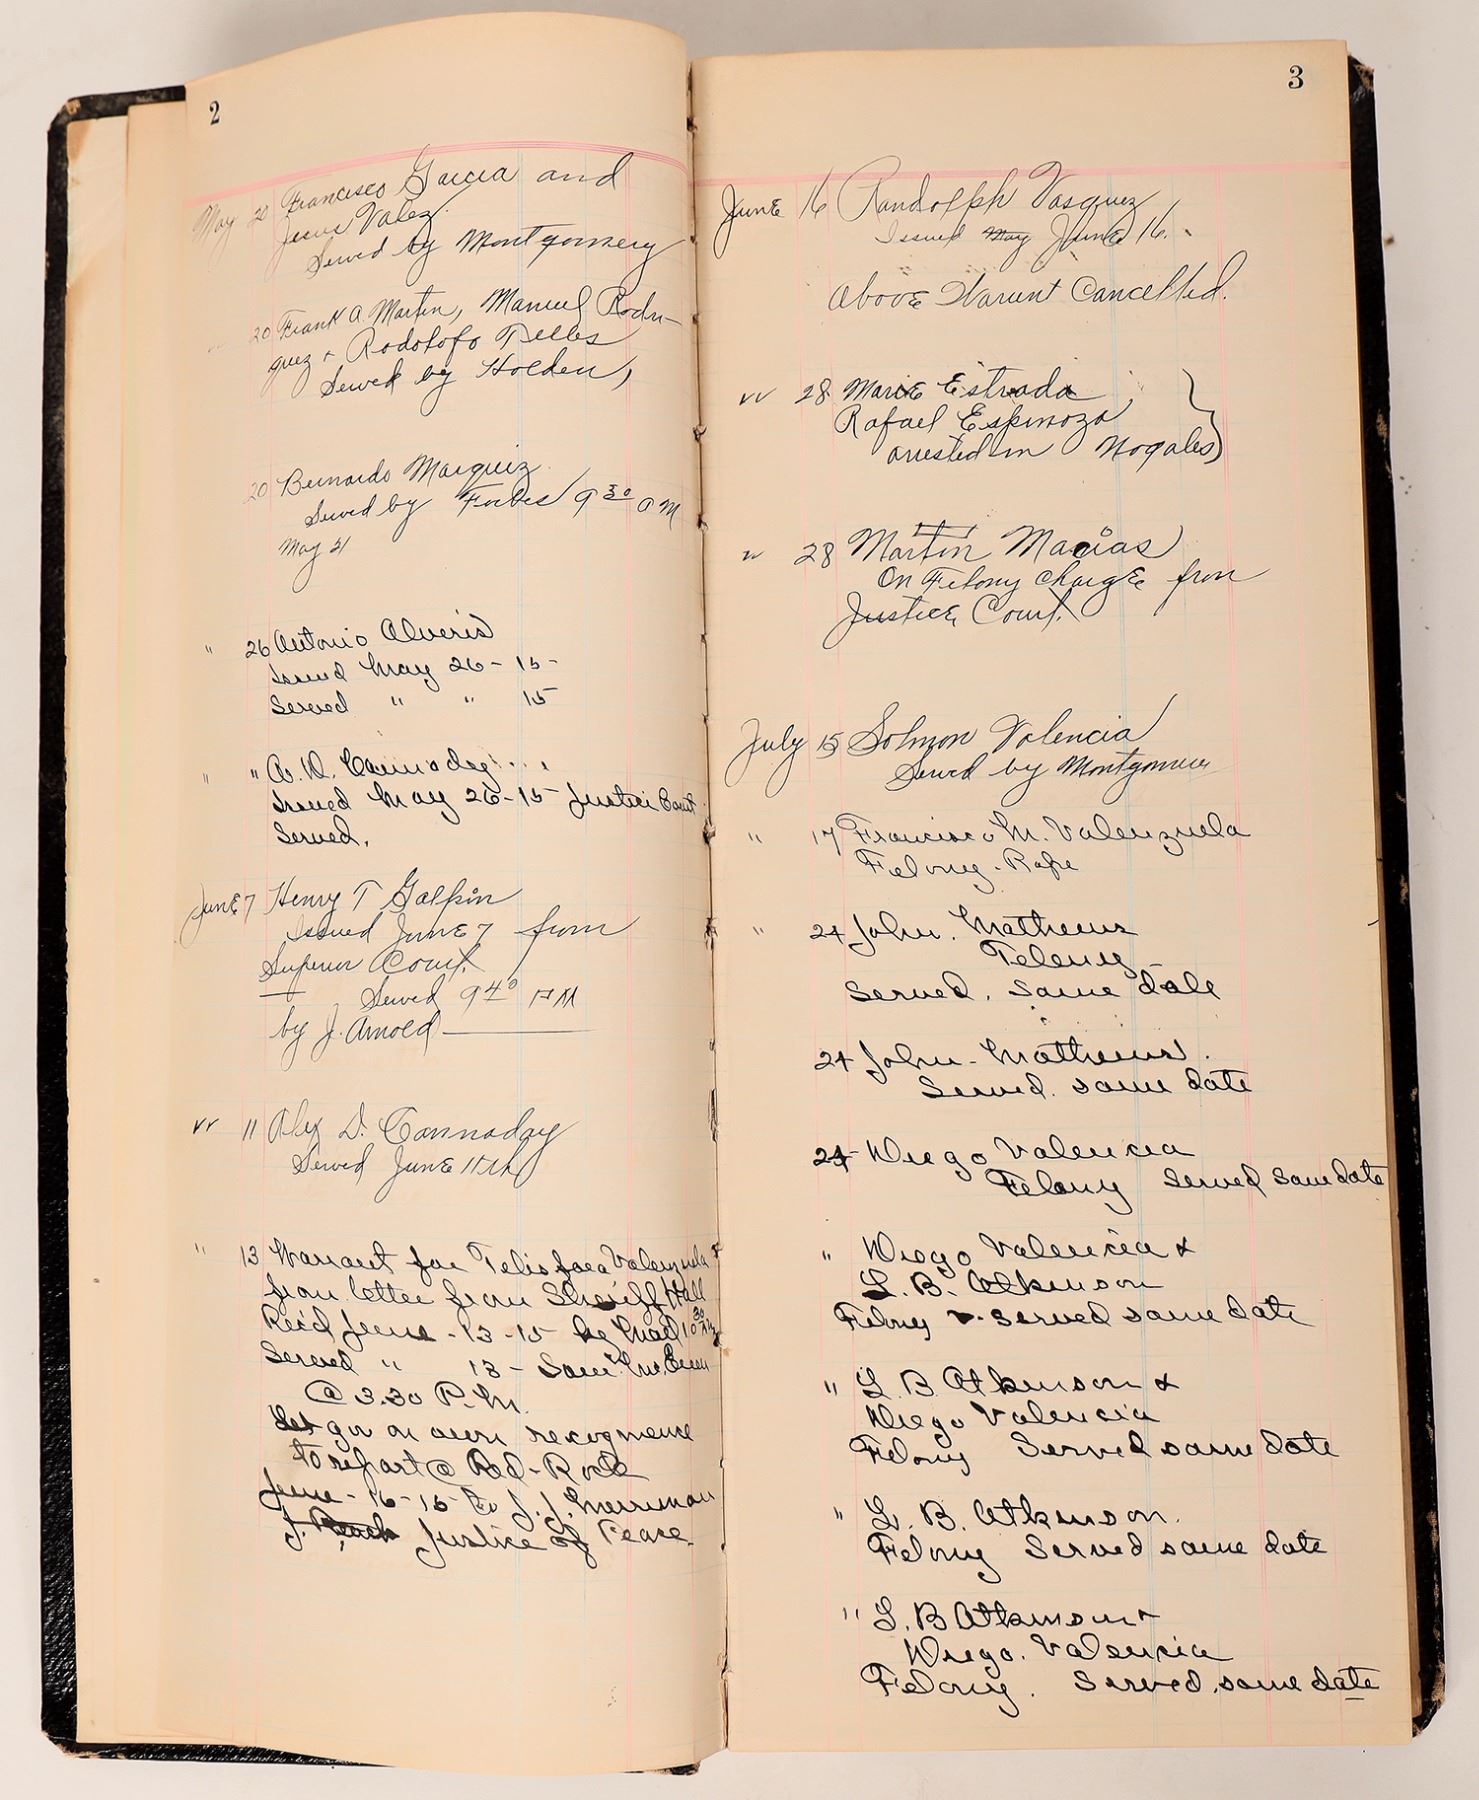 2
May 20 Francisco Garcia and
Jesus Valez
Served by Montgomery
" 20 Frank A. Martin, Manuel Rodri-
guez & Rodolofo Telles
Served by Holden,
20 Bernardo Marquiz
Served by Forbes 9 30 AM
May 21
" 26 Antonio Alveris
Issued May 26 - 15 -
Served " " 15
" " A. D. Cannaday
Issued May 26 - 15 Justice Court
Served.
June 7 Henry T Galpin
Issued June 7 from
Superior Court.
Served 9 40 PM
by J. Arnold
" 11 Alex D. Cannaday
Served June 11th
" 13 Warrant for Telisfora Valenzuela
from letter from Sheriff Hall
Rec'd June - 13 - 15 by Mail 10 30
Served " 13 - Sam
@ 3.30 P.M.
Let go on own recognence
to report @ Red-Rock
June - 16 - 15 to J. J. Merriman
J. Justice of Peace
3
June 16 Randolph Vasquez
Issued May June 16.
Above Warunt Cancelled.
" 28 Marie Estrada
Rafael Espinoza
arrested in Nogales
" 28 Martin Macias
On Felony Charge from
Justice Court.
July 15 Solmon Valencia
Served by Montgomery
" 17 Francisco M. Valenzuela
Felony - Rape
" 24 John. Mathews
Felony
Served. Same date
24 John - Mathews.
Served. same date
24 Diego Valencia
Felony Served same date
" Diego Valencia &
L. B. Atkinson
Felony served same date
" L. B. Atkinson &
Diego Valencia
Felony Served same date
" L. B. Atkinson.
Felony Served same date
" L. B Atkinson &
Diego. Valencia
Felony. Served same date